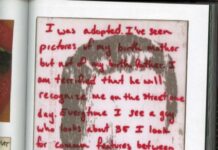 I was adopted. I've seen
pictures of my birth mother
but not of my birth father. I
am terrified that he will
recognize me on the street one
day. Everytime I see a guy
who looks about 35 I look
for common features between